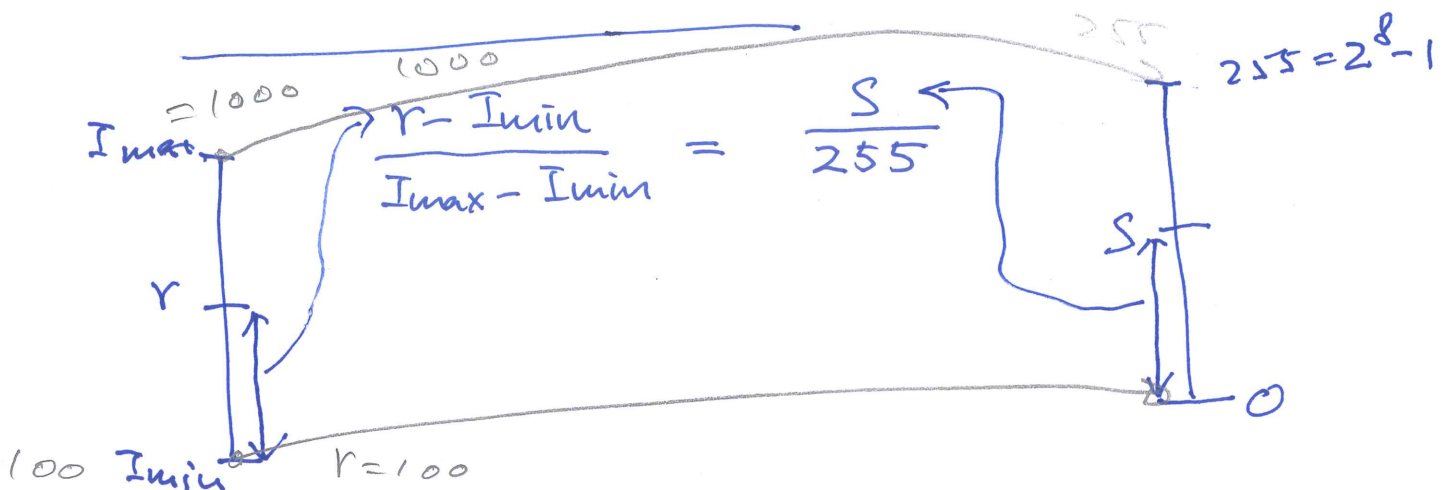 255
255 = 2^8 - 1
1000
= 1000
Imax
r - Imin / Imax - Imin = S / 255
S
r
0
100 Imin r = 100